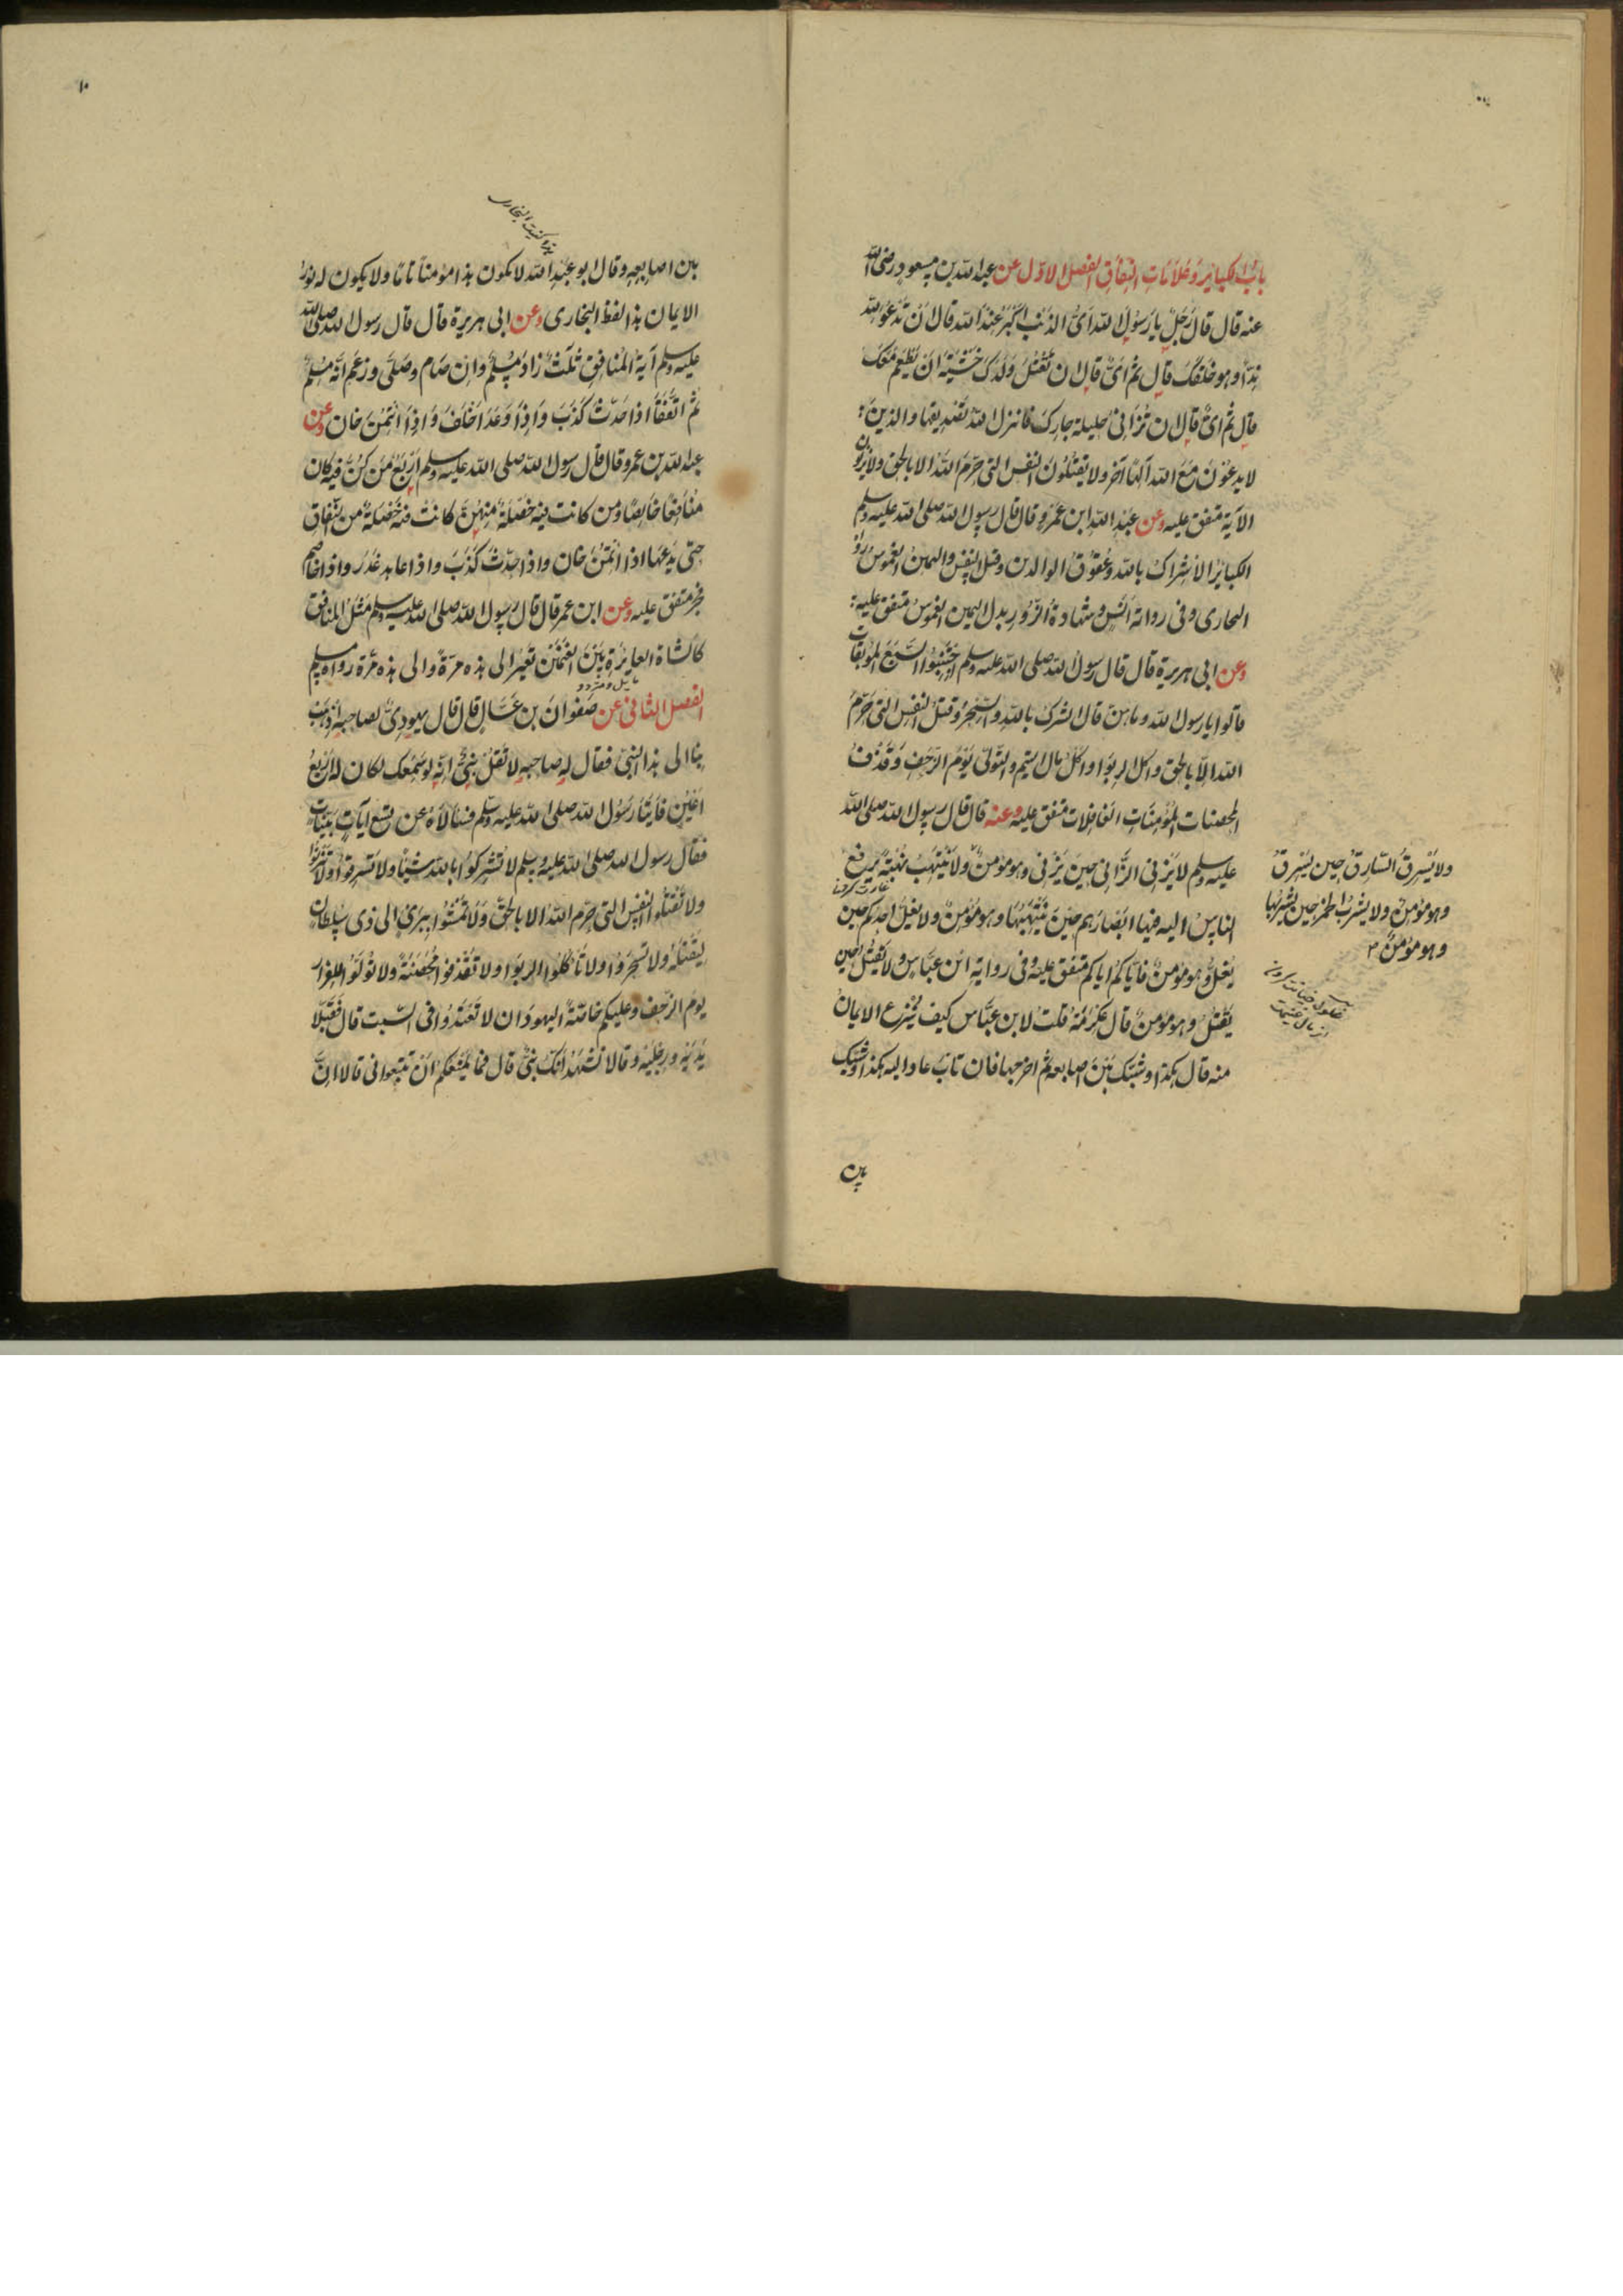 باب الكبائر وعلامات النفاق الفصل الاول عن عبد الله بن مسعود رضى الله
عنه قال قال رجل يا رسول الله اىُّ الذنب اكبر عند الله قال ان تدعو لله
ندّا وهو خلقك قال ثم اىّ قال ان تقتل ولدك خشية ان يطعم معك
قال ثم اىّ قال ان تزانى حليلة جارك فانزل الله تصديقها والذين
لا يدعون مع الله الٰها آخر ولا يقتلون النفس التى حرّم الله الا بالحق ولا يزنون
الآية متفق عليه وعن عبد الله ابن عمرو قال قال رسول الله صلى الله عليه وسلم
الكبائر الاشراك بالله وعقوق الوالدين وقتل النفس واليمين الغموس رواه
البخارى وفى رواية انس وشهادة الزور بدل اليمين الغموس متفق عليه
وعن ابى هريرة قال قال رسول الله صلى الله عليه وسلم اجتنبوا السبع الموبقات
قالوا يا رسول الله وما هنّ قال الشرك بالله والسحر وقتل النفس التى حرّم
الله الّا بالحق واكل الربوا واكل مال اليتيم والتولّى يوم الزحف وقذف
المحصنات المؤمنات الغافلات متفق عليه وعنه قال قال رسول الله صلى الله
عليه وسلم لا يزنى الزّانى حين يزنى وهو مؤمن ولا ينتهب نهبة يرفع
الناس اليه فيها ابصارهم حين ينتهبها وهو مؤمن ولا يغلّ احدكم حين
يغلّ وهو مؤمن فاياكم اياكم متفق عليه وفى رواية ابن عباس ولا يقتل حين
يقتل وهو مؤمن قال عكرمة قلت لابن عبّاس كيف ينزع الايمان
منه قال هكذا وشبّك بين اصابعه ثم اخرجها فان تاب عاد اليه هكذا وشبّك
بين
ولا يسرق السّارق حين يسرق
وهو مؤمن ولا يشرب الخمر حين يشربها
وهو مؤمن
غلول خيانت كردن
از مال غنيمت
١٠
بين اصابعه وقال ابو عبد الله لا يكون هذا مؤمنا تامّا ولا يكون له نور
الايمان هذا لفظ البخارى وعن ابى هريرة قال قال رسول الله صلى الله
عليه وسلم آية المنافق ثلٰث زاد مسلم وان صام وصلّى وزعم انّه مسلم
ثم اتّفقا اذا حدّث كذب واذا وعد اخلف واذا ائتمن خان وعن
عبد الله بن عمرو قال قال رسول الله صلى الله عليه وسلم اربع من كنّ فيه كان
منافقا خالصا ومن كانت فيه خصلة منهنّ كانت فيه خصلة من النفاق
حتى يدعها اذا ائتمن خان واذا حدّث كذب واذا عاهد غدر واذا خاصم
فجر متفق عليه وعن ابن عمر قال قال رسول الله صلى الله عليه وسلم مثل المنافق
كالشاة العايرة بين الغنمين تعير الى هذه مرّة والى هذه مرّة رواه مسلم
الفصل الثانى عن صفوان بن عسّال قال قال يهودىّ لصاحبه اذهب
بنا الى هذا النبىّ فقال له صاحبه لا تقل نبىّ انّه لو سمعك لكان له اربع
اعين فاتيا رسول الله صلى الله عليه وسلم فسألاه عن تسع آيات بيّنات
فقال رسول الله صلى الله عليه وسلم لا تشركوا بالله شيئا ولا تسرقوا ولا تزنوا
ولا تقتلوا النفس التى حرّم الله الا بالحقّ ولا تمشوا ببرئ الى ذى سلطان
ليقتله ولا تسحروا ولا تأكلوا الربوا ولا تقذفوا محصنة ولا تولّوا للفرار
يوم الزحف وعليكم خاصّة اليهود ان لا تعتدوا فى السّبت قال فقبّلا
يديه ورجليه وقالا نشهد انّك نبىّ قال فما يمنعكم ان تتبعونى قالا انّ